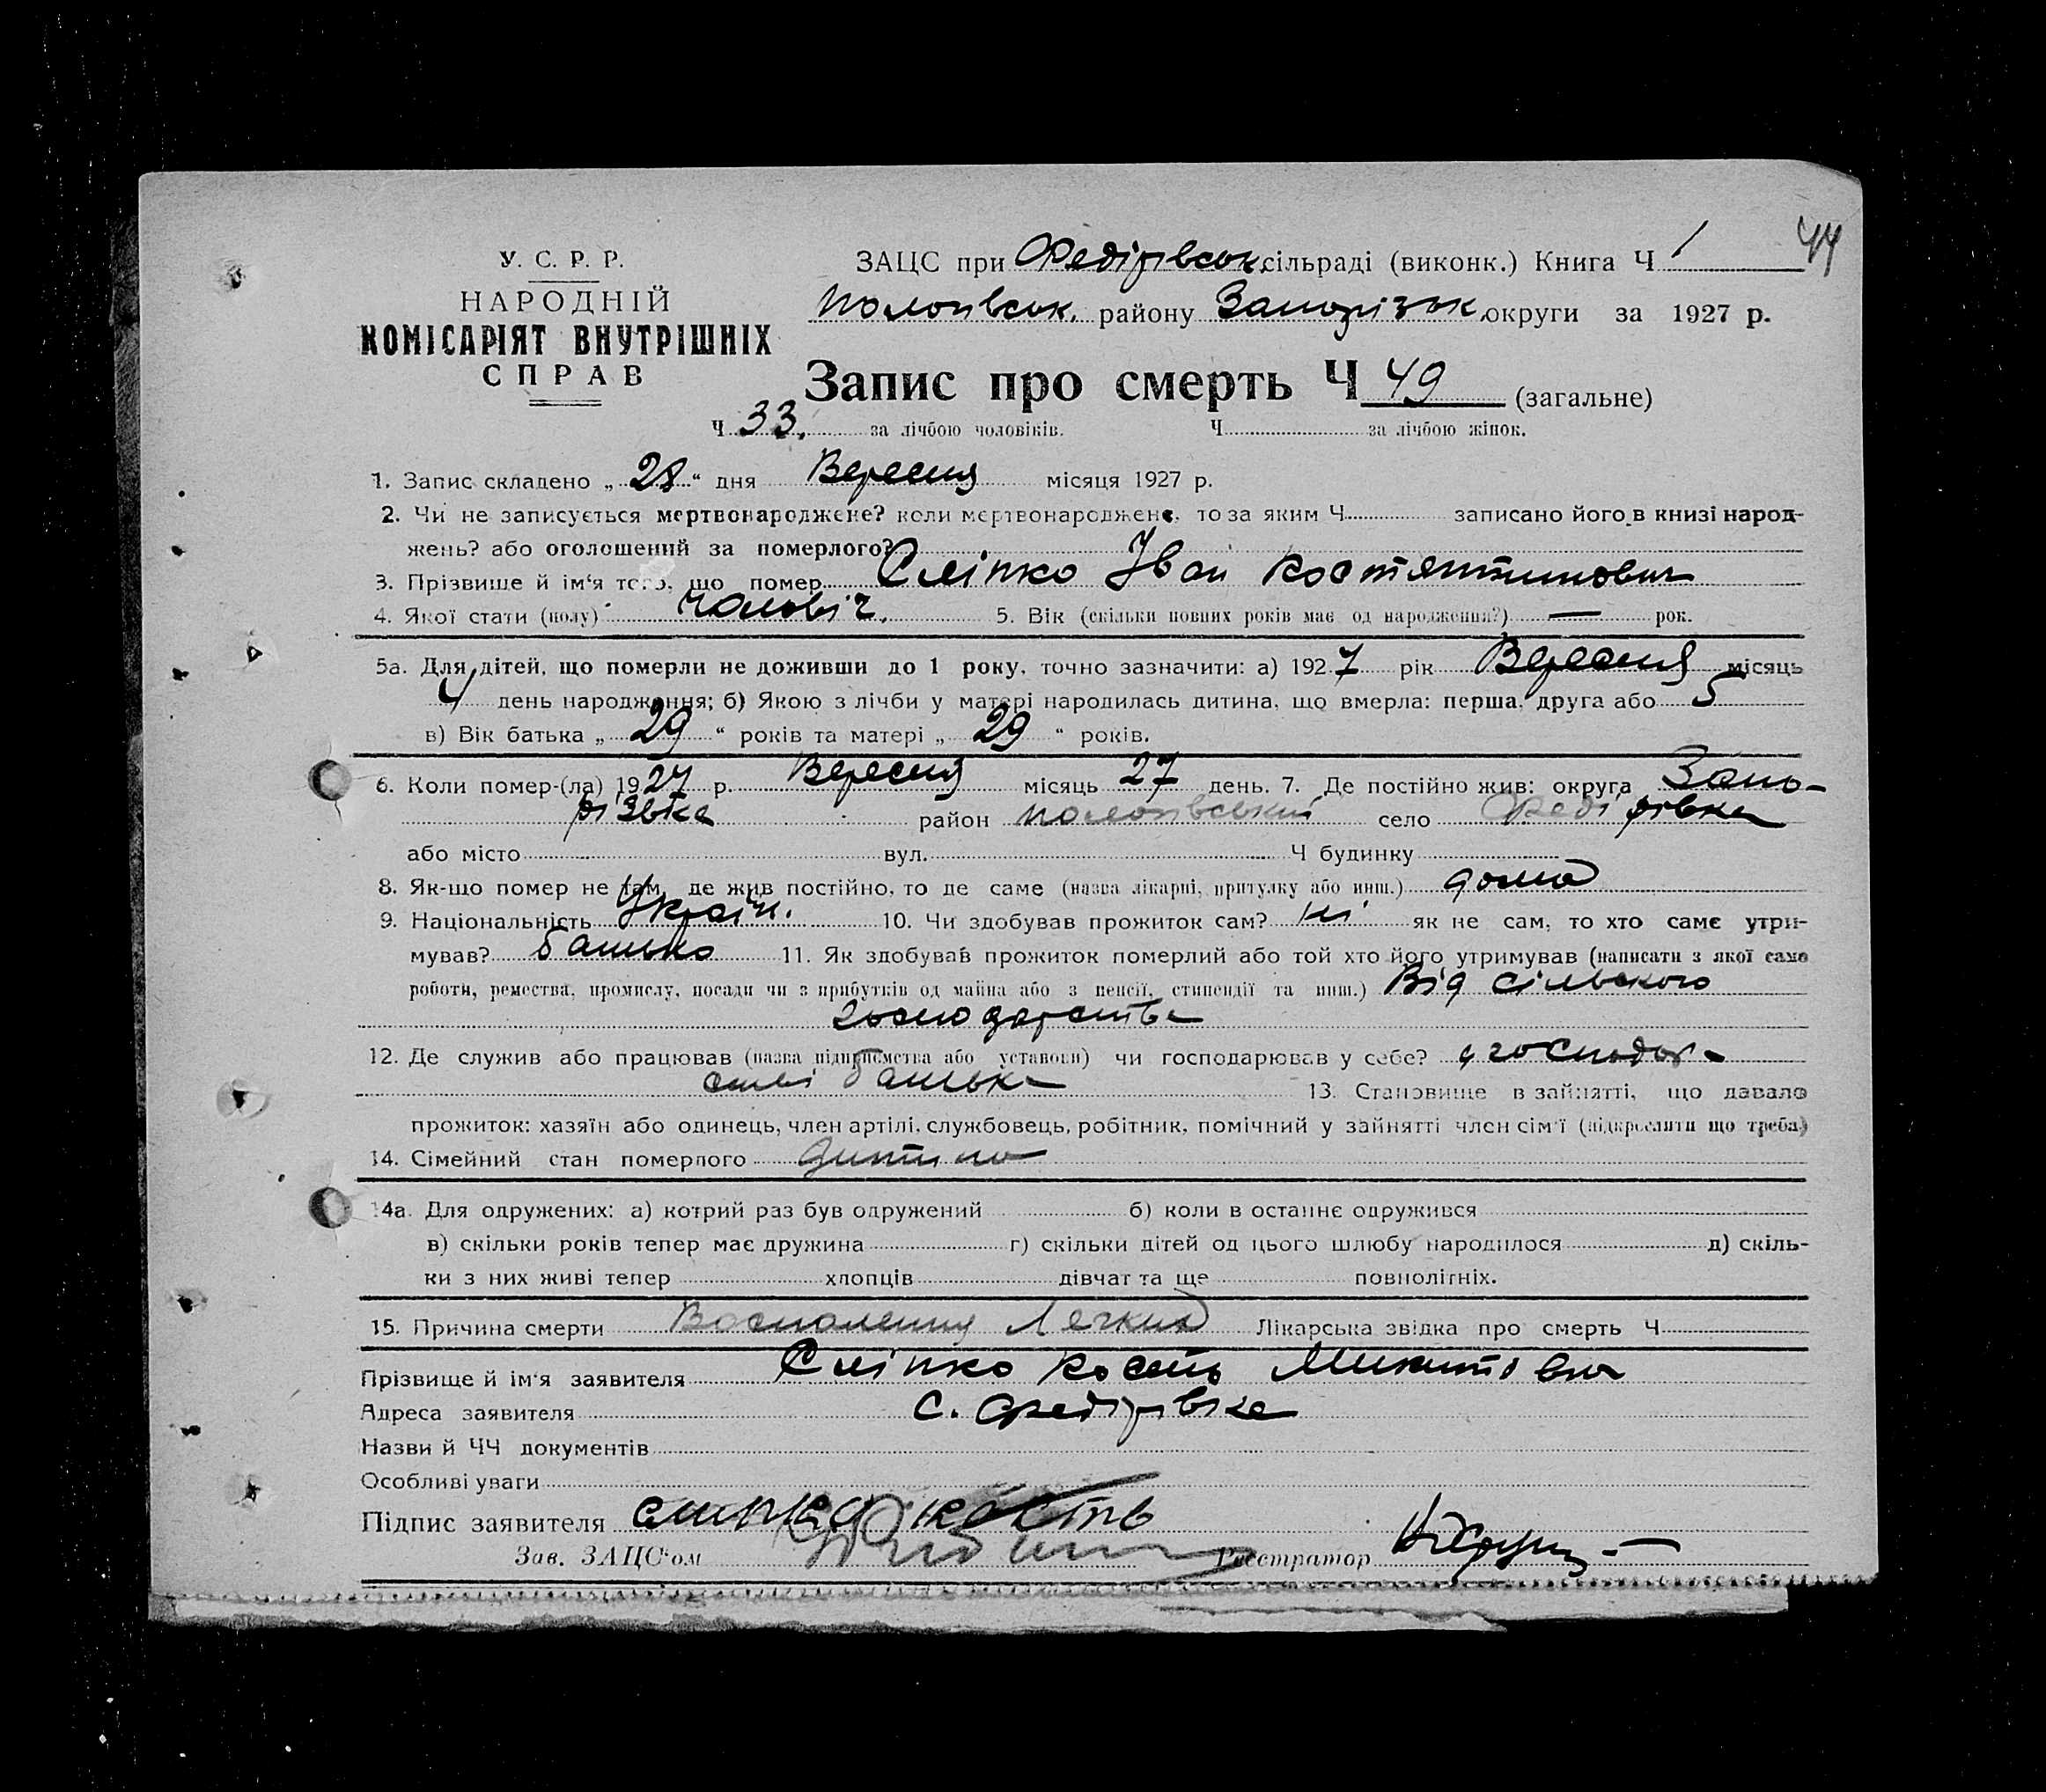 44
У. С. Р. Р.
НАРОДНІЙ
КОМІСАРІЯТ ВНУТРІШНІХ
СПРАВ
ЗАЦС при Федірівськ. сільраді (виконк.) Книга Ч 1
Пологівськ. району Запорізьк. округи за 1927 р.
Запис про смерть Ч 49 (загальне)
Ч 33. за лічбою чоловіків. Ч за лічбою жінок.
1. Запис складено „28“ дня Вересня місяця 1927 р.
2. Чи не записується мертвонароджене? коли мертвонароджене, то за яким Ч записано його в книзі народ-
жень? або оголошений за померлого?
3. Прізвище й ім'я того, що помер Сліпко Іван Костянтинович
4. Якої стати (полу) чоловіч. 5. Вік (скільки повних років має од народження?) — рок.
5а. Для дітей, що померли не доживши до 1 року, точно зазначити: а) 1927 рік Вересня місяць
4 день народження; б) Якою з лічби у матері народилась дитина, що вмерла: перша, друга або 5
в) Вік батька „29“ років та матері „29“ років.
6. Коли помер-(ла) 1927 р. Вересня місяць 27 день. 7. Де постійно жив: округа Запо-
різька район Пологівський село Федірівка
або місто вул. Ч будинку
8. Як-що помер не там, де жив постійно, то де саме (назва лікарні, притулку або инш.) дома
9. Національність Україн. 10. Чи здобував прожиток сам? ні як не сам, то хто саме утри-
мував? батько 11. Як здобував прожиток померлий або той хто його утримував (написати з якої саме
роботи, ремества, промислу, посади чи з прибутків од майна або з пенсії, стипендії та инш.) Від сільського
господарства
12. Де служив або працював (назва підприємства або установи) чи господарював у себе? у господар-
стві батька 13. Становище в зайнятті, що давало
прожиток: хазяїн або одинець, член артілі, службовець, робітник, помічний у зайнятті член сім'ї (підкреслити що треба)
14. Сімейний стан померлого дитина
14а. Для одружених: а) котрий раз був одружений б) коли в останнє одружився
в) скільки років тепер має дружина г) скільки дітей од цього шлюбу народилося д) скіль-
ки з них живі тепер хлопців дівчат та ще повнолітніх.
15. Причина смерти Воспаления Легких Лікарська звідка про смерть Ч
Прізвище й ім'я заявителя Сліпко Кость Микитович
Адреса заявителя с. Федірівка
Назви й ЧЧ документів
Особливі уваги
Підпис заявителя слипко кость
Зав. ЗАЦС'ом Реєстратор